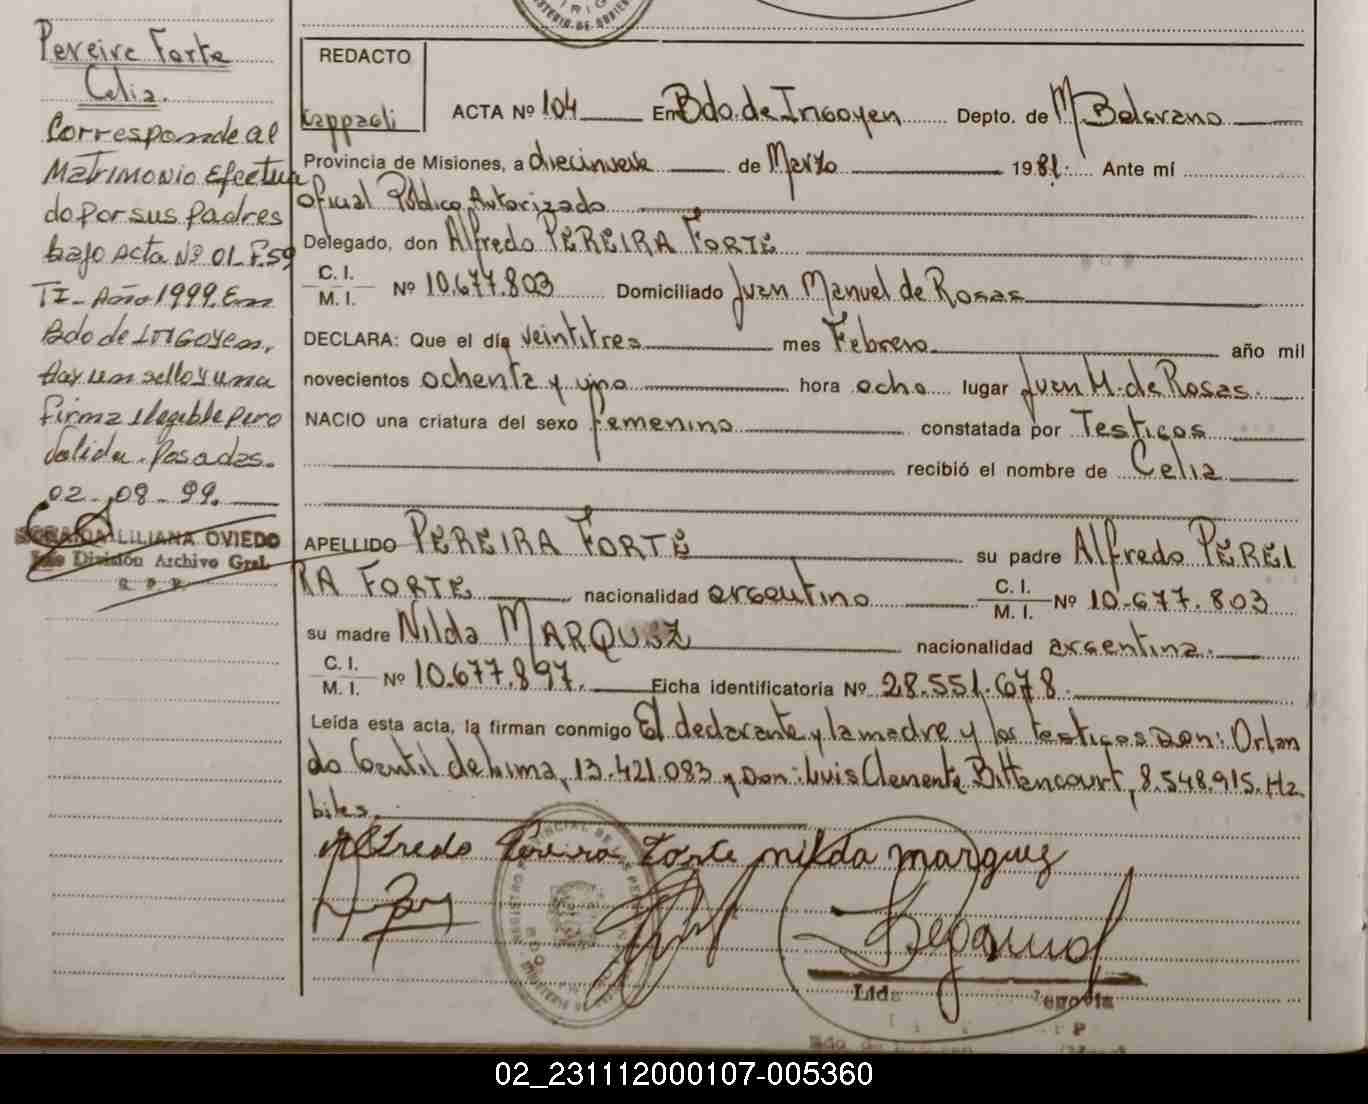 Pereira Forte
Celia.
Corresponde al
Matrimonio Efectua
do por sus Padres
bajo Acta Nº 01_F.59
TI_Año 1999. En
Bdo de Irigoyen,
Hay un sello y una
firma ilegible pero
Valida. Posadas.
02_08_99.
LILIANA OVIEDO
División Archivo Gral.
R. P. P.
REDACTO
Cappaoli
ACTA Nº 104 En Bdo. de Irigoyen Depto. de M Belgrano
Provincia de Misiones, a diecinueve de Marzo 1981. Ante mí
Oficial Público Autorizado
Delegado, don Alfredo PEREIRA FORTE
C. I.
M. I. Nº 10.677.803 Domiciliado Juan Manuel de Rosas
DECLARA: Que el día veintitres mes Febrero año mil
novecientos ochenta y uno hora ocho lugar Juan M. de Rosas.
NACIO una criatura del sexo femenino constatada por Testigos
recibió el nombre de Celia
APELLIDO PEREIRA FORTE su padre Alfredo PEREI
RA FORTE nacionalidad argentino C. I. M. I. Nº 10.677.803
su madre Nilda MARQUEZ nacionalidad argentina.
C. I.
M. I. Nº 10.677.897. Ficha identificatoria Nº 28.551.678.
Leída esta acta, la firman conmigo El declarante y la madre y los testigos Don: Orlan
do Gentil de Lima, 13.421.083 y Don: Luis Clemente Bittencourt, 8.548.915. Ha
biles.
Alfredo Pereira Forte nilda marquez
Lida Segovia
02_231112000107-005360